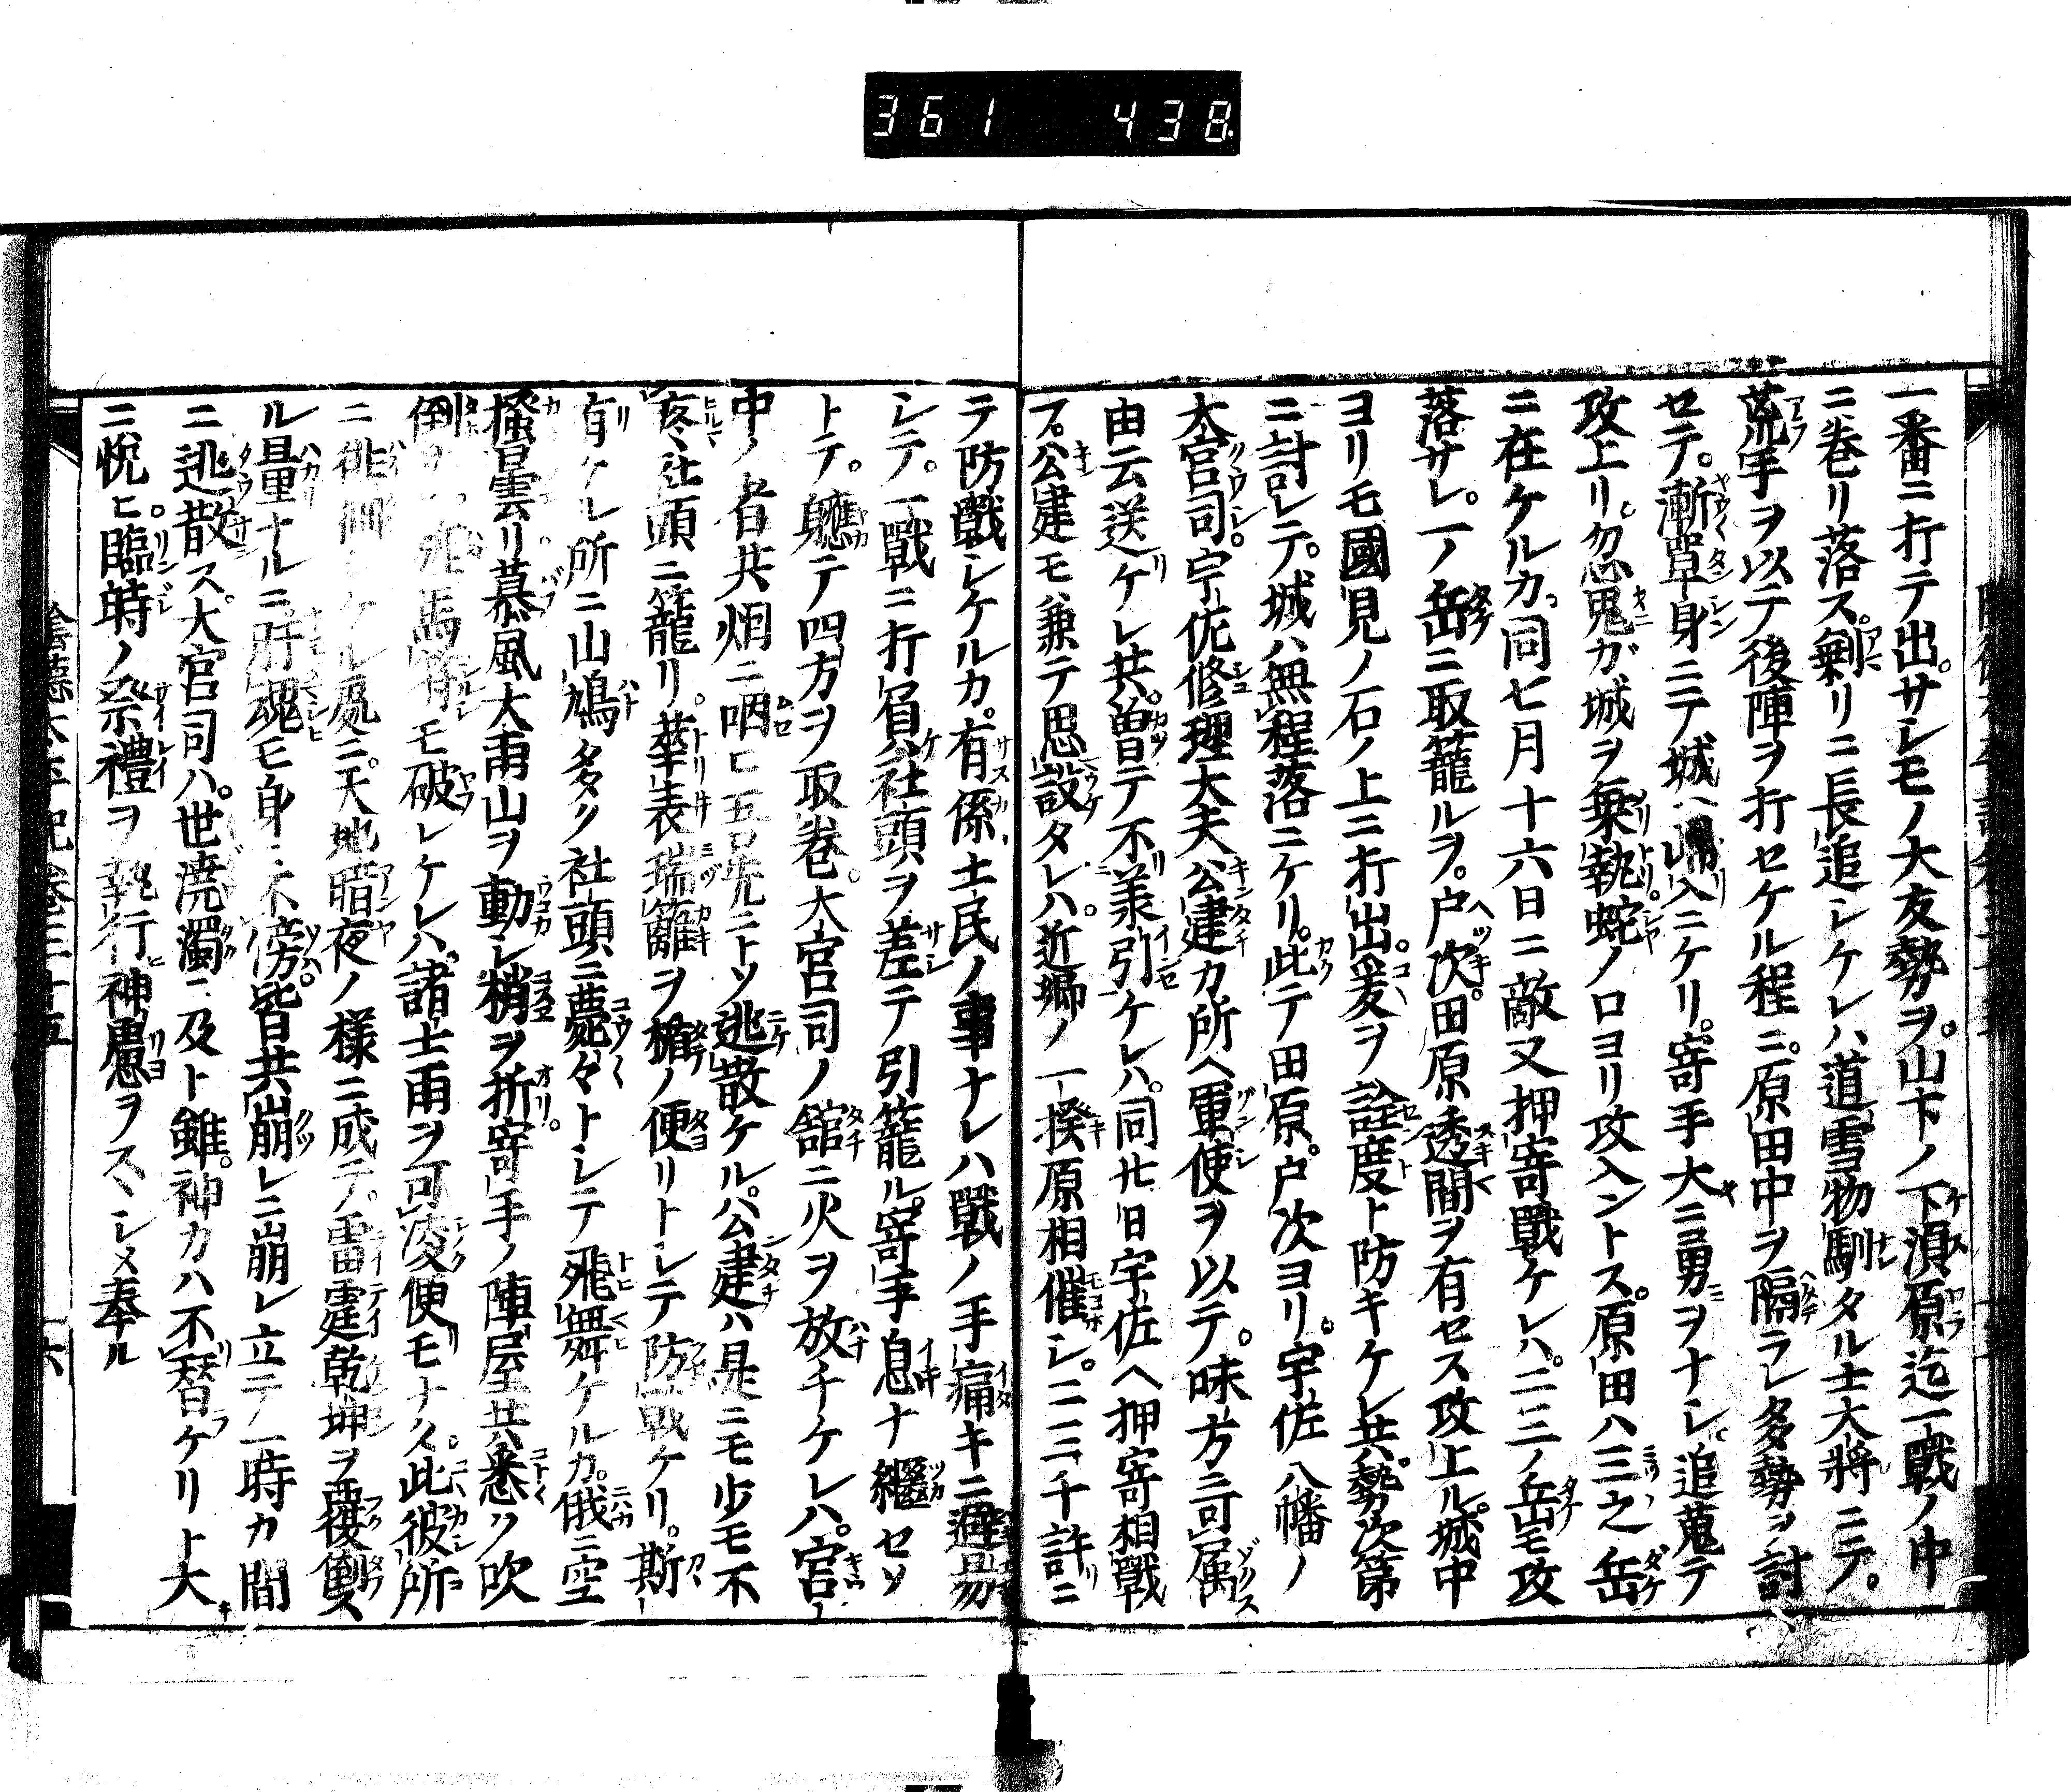 361 438
一番ニ打テ出。サレモノ大友勢ヲ。山下ノ下湏原迄一戰ノ中
ニ巻リ落ス。剰リニ長追シケレハ道雪物馴タル士大将ニテ。
荒手ヲ以テ後陣ヲ打セケル程ニ。原田中ヲ隔ラレ多勢ヲ討
セテ。漸單身ニテ城ヘ歸入ニケリ。寄手大ニ勇ヲナシ。追蒐テ
攻上リ。忽鬼ガ城ヲ乗執。蛇ノ口ヨリ攻入ントス。原田ハ三之岳
ニ在ケルカ。同七月十六日ニ敵又押寄戰ケレハ。二三ノ岳モ攻
落サレ。一ノ岳ニ取籠ルヲ。戸次。田原透間ヲ有セス攻上ル。城中
ヨリモ國見ノ石ノ上ニ打出。爰ヲ詮度ト防キケレ共。勢次第
ニ討レテ。城ハ無程落ニケリ。此テ田原。戸次ヨリ。宇佐八幡ノ
大宮司。宇佐修理大夫公建カ所ヘ軍使ヲ以テ。味方ニ可属
由云送ケレ共。曽テ不兼引ケレハ。同廿日宇佐ヘ押寄相戰
フ。公建モ兼テ思設タレハ。近郷ノ一揆原相催シ。二三千許ニ
テ防戰シケルカ。有係土民ノ事ナレハ戰ノ手痛キニ辟易
シテ。一戰ニ打負ハ社頭ヲ差テ引籠ル。寄手息ナ繼セソ
トテ。軈テ四方ヲ取巻。大宮司ノ舘ニ火ヲ放チケレハ。宮
中ノ者共烟ニ咽ヒ吾先ニトソ逃散ケル。公建ハ是ニモ少モ不
疼。社頭ニ籠リ。華表瑞籬ヲ楯ノ便リトシテ防戰ケリ。斯
有ケレ所ニ山鳩多ク社頭ニ薨々トシテ飛舞ケルカ。俄ニ空
搔曇リ暴風大雨山ヲ動シ梢ヲ折。寄手ノ陣屋共悉ク吹
倒ス 馬 モ破レケレハ。諸士雨ヲ可凌便モナク。此彼所
ニ徘徊シケレ處ニ。天地暗夜ノ様ニ成テ。雷霆乾坤ヲ覆倒ス
ル量ナルニ。肝魂モ身ニ不傍。皆共崩レニ崩レ立テ一時カ間
ニ逃散ス。大宮司ハ。世澆濁ニ及ト雖。神カハ不替ケリト大
ニ悦ヒ。臨時ノ祭禮ヲ執行神慮ヲスヽシメ奉ル
陰德太平記巻三十五
十六